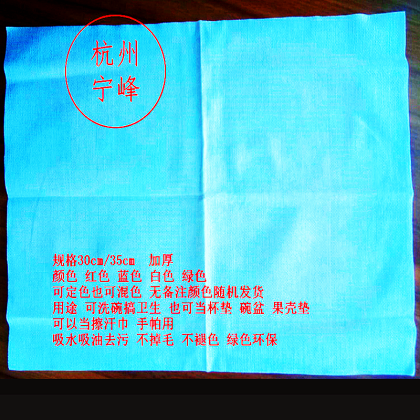 杭州
宁峰
规格30cm/35cm 加厚
颜色 红色 蓝色 白色 绿色
可定色也可混色 无备注颜色随机发货
用途 可洗碗搞卫生 也可当杯垫 碗盆 果壳垫
可以当擦汗巾 手帕用
吸水吸油去污 不掉毛 不褪色 绿色环保